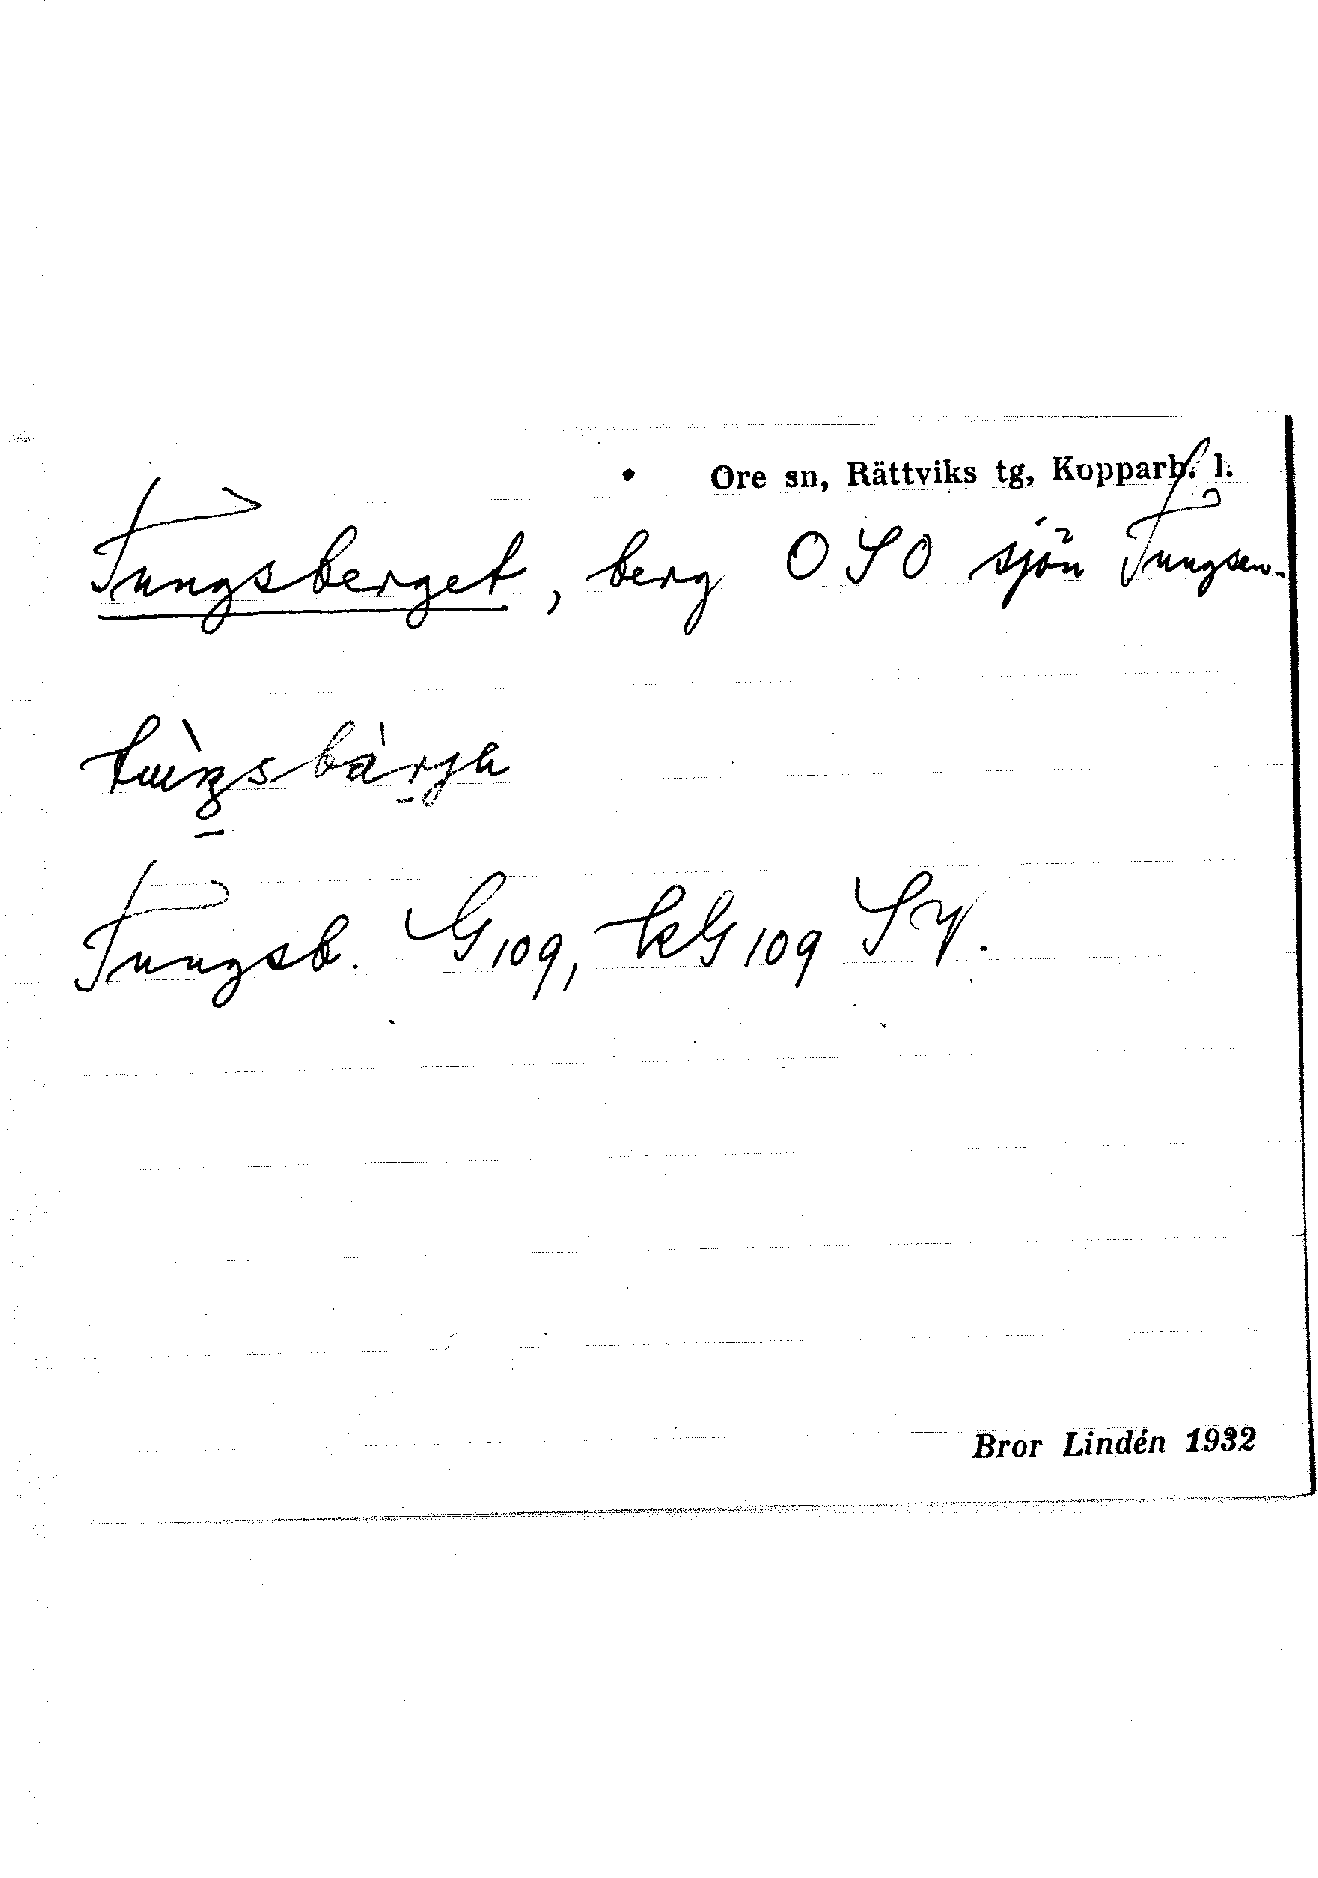 Ore sn, Rättviks tg, Kopparb. l.
Tungsberget, berg OSO sjön Tungsen.
Tungsb. G109, kG109 SV.
Bror Lindén 1932